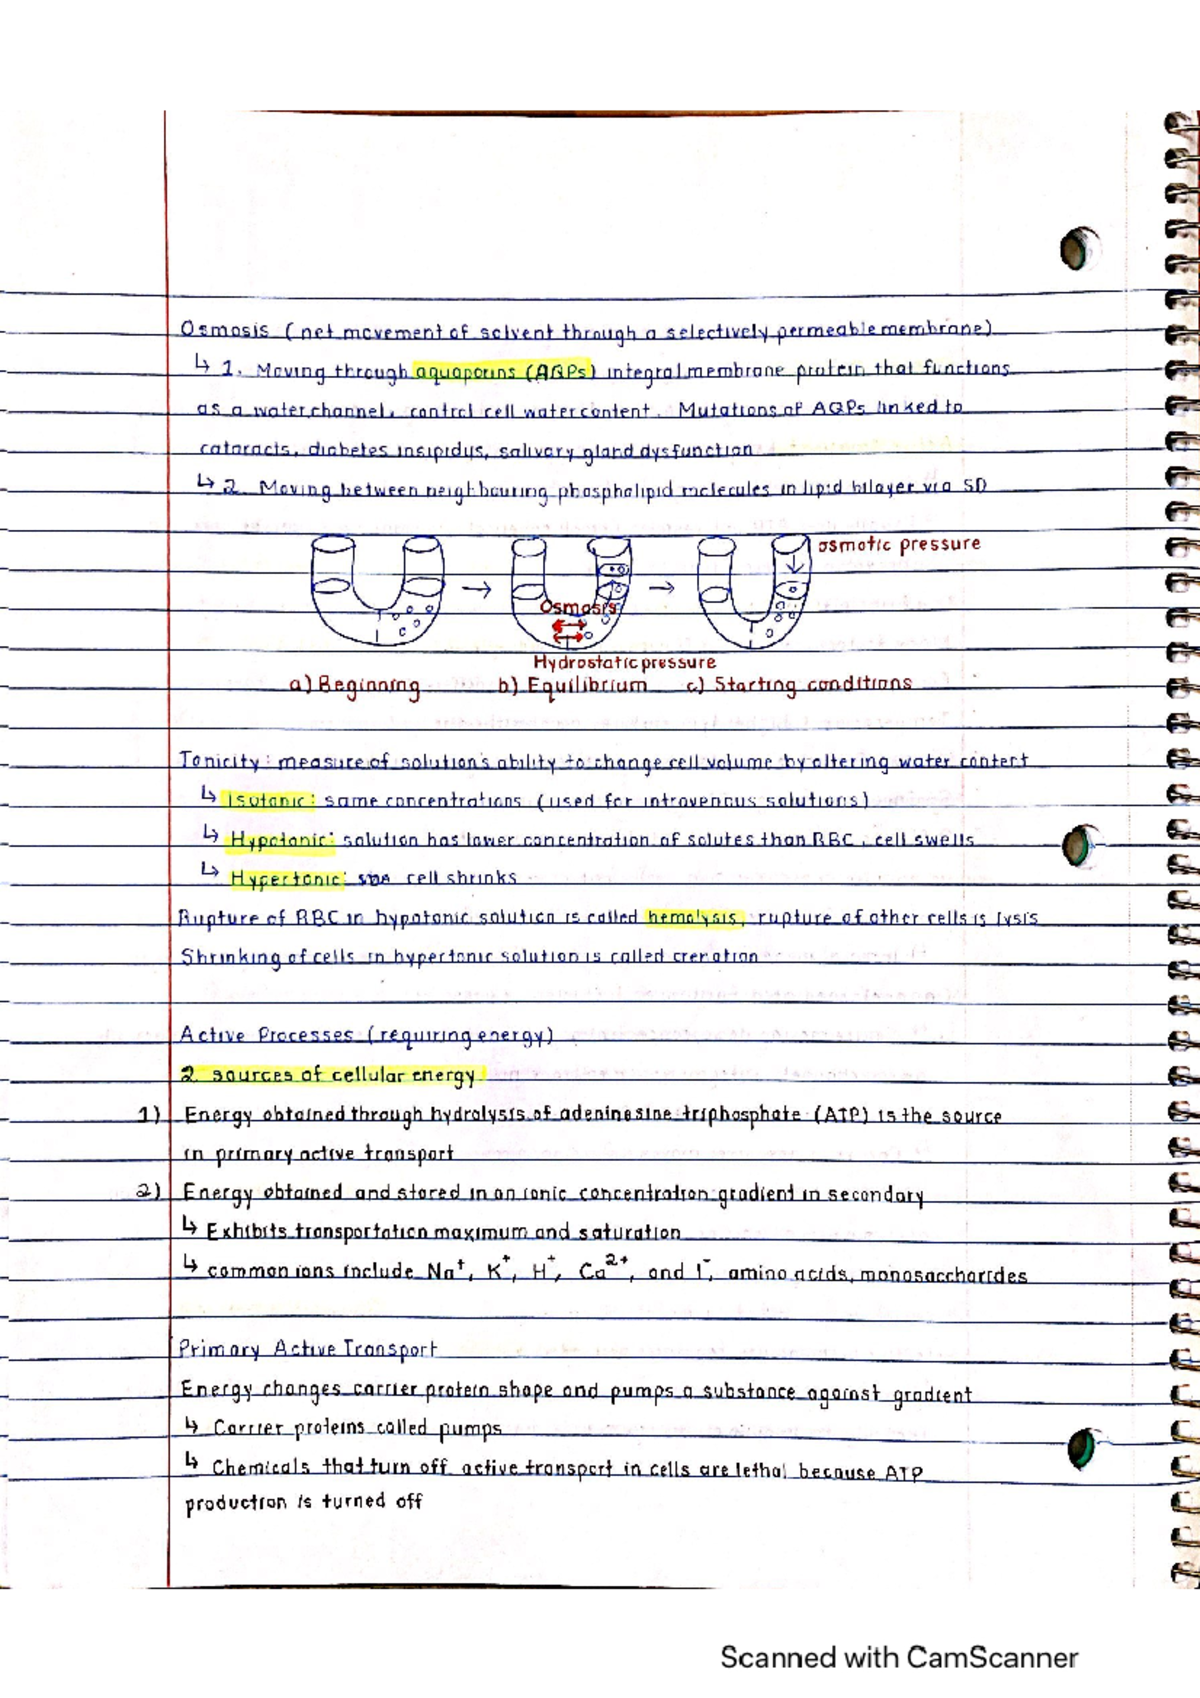 Osmosis (net movement of solvent through a selectively permeable membrane)
↳ 1. Moving through aquaporins (AQPs) integral membrane protein that functions
as a water channel, control cell water content. Mutations of AQPs linked to
cataracts, diabetes insipidus, salivary gland dysfunction
↳ 2. Moving between neighbouring phospholipid molecules in lipid bilayer via SD
osmotic pressure
Osmosis
Hydrostatic pressure
a) Beginning b) Equilibrium c) Starting conditions
Tonicity: measure of solution's ability to change cell volume by altering water content
↳ Isotonic: same concentrations (used for intravenous solutions)
↳ Hypotonic: solution has lower concentration of solutes than RBC, cell swells
↳ Hypertonic: cell shrinks
Rupture of RBC in hypotonic solution is called hemolysis, rupture of other cells is lysis
Shrinking of cells in hypertonic solution is called crenation
Active Processes (requiring energy)
2 sources of cellular energy
1) Energy obtained through hydrolysis of adeninesine triphosphate (ATP) is the source
in primary active transport
2) Energy obtained and stored in an ionic concentration gradient in secondary
↳ Exhibits transportation maximum and saturation
↳ common ions include Na⁺, K⁺, H⁺, Ca²⁺, and I⁻, amino acids, monosaccharides
Primary Active Transport
Energy changes carrier protein shape and pumps a substance against gradient
↳ Carrier proteins called pumps
↳ Chemicals that turn off active transport in cells are lethal because ATP
production is turned off
Scanned with CamScanner